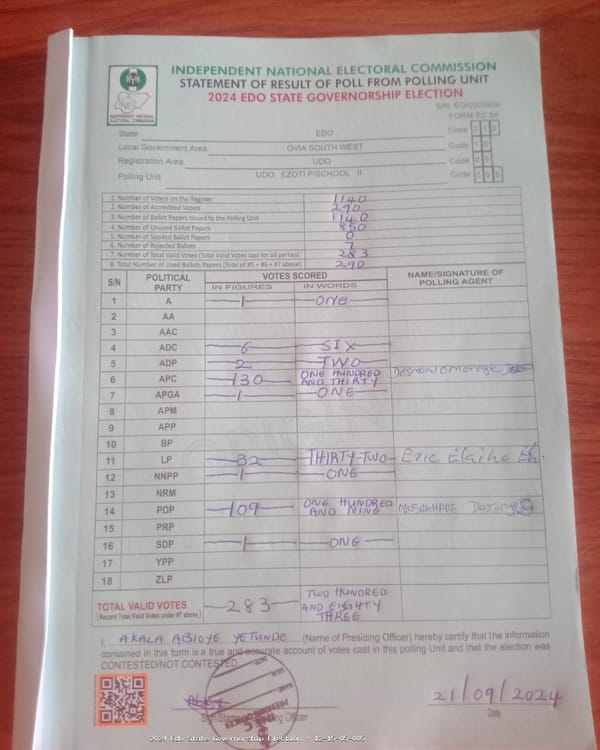 INDEPENDENT NATIONAL ELECTORAL COMMISSION
STATEMENT OF RESULT OF POLL FROM POLLING UNIT
2024 EDO STATE GOVERNORSHIP ELECTION
INDEPENDENT NATIONAL ELECTORAL COMMISSION
FORM EC 8A
State EDO Code
Local Government Area OVIA SOUTH WEST Code
Registration Area UDO Code
Polling Unit UDO, EZOTI P/SCHOOL II Code
1. Number of Voters on the Register 1140
2. Number of Accredited Voters 290
3. Number of Ballot Papers Issued to the Polling Unit 1140
4. Number of Unused Ballot Papers 850
5. Number of Spoiled Ballot Papers 0
6. Number of Rejected Ballots 7
7. Number of Total Valid Votes (Total Valid Votes cast for all parties) 283
8. Total Number of Used Ballots Papers (Total of #5 + #6 + #7 above) 290
S/N POLITICAL PARTY VOTES SCORED NAME/SIGNATURE OF POLLING AGENT
IN FIGURES IN WORDS
1 A 1 ONE
2 AA
3 AAC
4 ADC 6 SIX
5 ADP 2 TWO
6 APC 130 ONE HUNDRED AND THIRTY Desmond
7 APGA 1 ONE
8 APM
9 APP
10 BP
11 LP 32 THIRTY-TWO Eric Elaiho
12 NNPP 1 ONE
13 NRM
14 PDP 109 ONE HUNDRED AND NINE Destiny
15 PRP
16 SDP 1 ONE
17 YPP
18 ZLP
TOTAL VALID VOTES 283 TWO HUNDRED AND EIGHTY THREE
(Record Total Valid Votes under #7 above)
I, AKALA ABIOYE YETUNDE (Name of Presiding Officer) hereby certify that the information
contained in this form is a true and accurate account of votes cast in this polling Unit and that the election was
CONTESTED/NOT CONTESTED
21/09/2024
Officer Date
2024 Edo State Governorship Election : 12-15-05-005